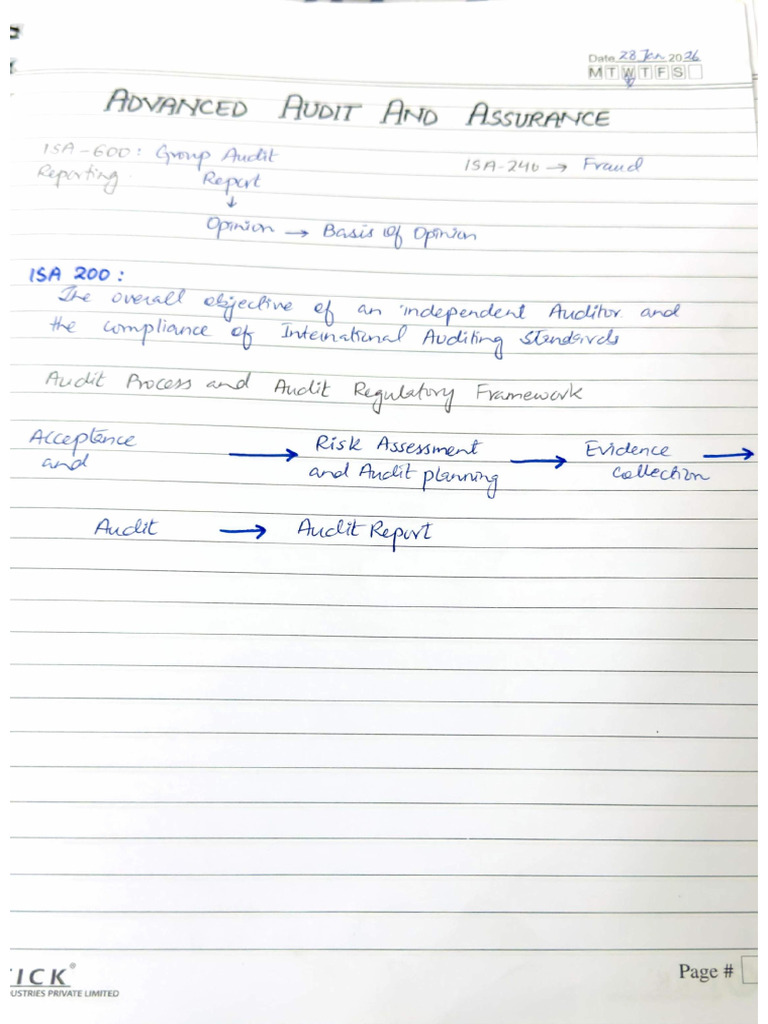 Date 28 Jan 2026
M T W T F S
ADVANCED AUDIT AND ASSURANCE
ISA-600: Group Audit
ISA-240 → Fraud
Reporting. Report
↓
Opinion → Basis of Opinion
ISA 200:
The overall objective of an independent Auditor and
the compliance of International Auditing Standards
Audit Process and Audit Regulatory Framework
Acceptance and → Risk Assessment and Audit planning → Evidence collection →
Audit → Audit Report
Page #
ICK®
USTRIES PRIVATE LIMITED